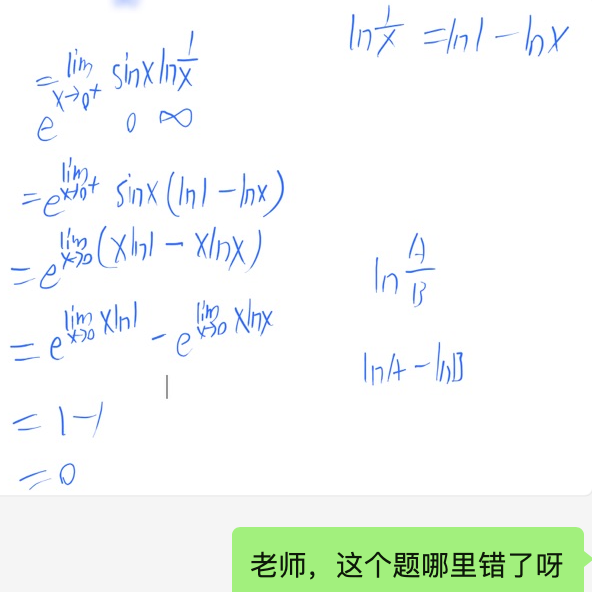 ln 1/x = ln1 - lnx
= e^{lim x→0⁺ sinx ln 1/x}
0 ∞
= e^{lim x→0⁺ sinx (ln1 - lnx)}
= e^{lim x→0 (xln1 - xlnx)}
ln A/B
= e^{lim x→0 xln1} - e^{lim x→0 xlnx}
lnA - lnB
= 1-1
= 0
老师，这个题哪里错了呀